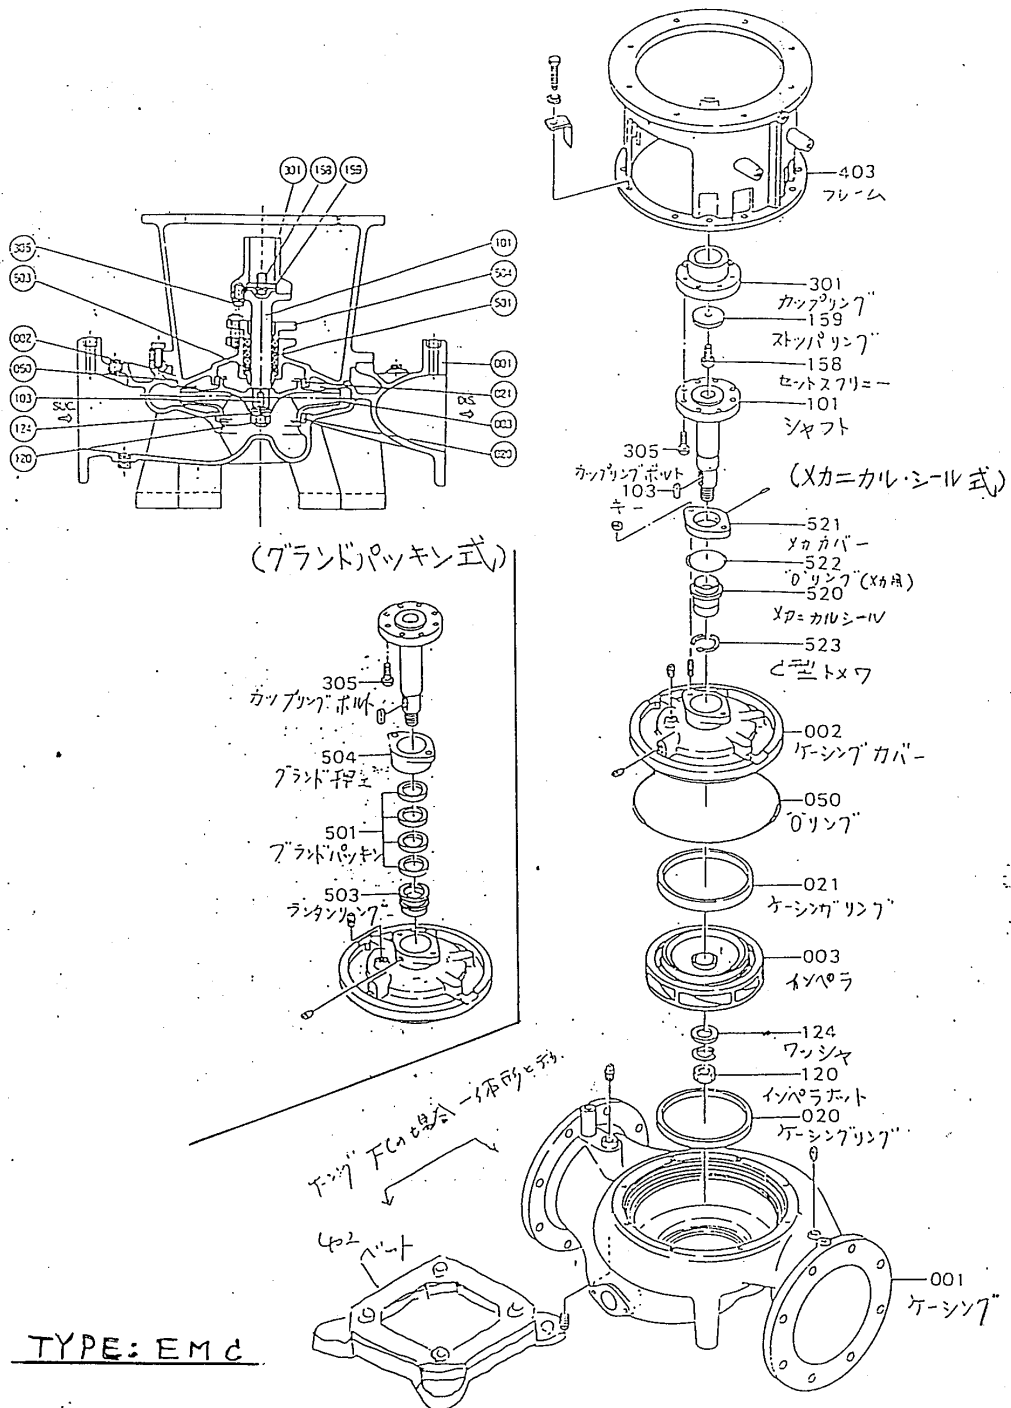 301 158 159
305
503
002
050
103
124
120
101
504
501
001
021
003
020
SUC
DIS
(グランドパッキン式)
305
カップリングボルト
504
グランド押エ
501
グランドパッキン
503
ランタンリング
403
フレーム
301
カップリング
159
ストッパリング
158
セットスクリュー
101
シャフト
305
カップリングボルト
103
キー
(メカニカル・シール式)
521
メカカバー
522
"O"リング(メカ用)
520
メカニカルシール
523
C型トメワ
002
ケーシングカバー
050
"O"リング
021
ケーシングリング
003
インペラ
124
ワッシャ
120
インペラナット
020
ケーシングリング
001
ケーシング
402
ベット
TYPE: EMC